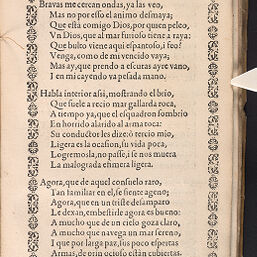 Bravas me cercan ondas, ya las veo,
Mas no por esso el animo desmaya;
Que está comigo Dios, por quien peleo,
Vn Dios, que al mar furioso tiene a raya:
Que bulto viene aqui espantoso, i feo?
Venga, como de mi vencido vaya;
Mas ay, que prendo a escuras ayre vano,
I en mi cayendo va pesada mano.
Habla interior assi, mostrando el brio,
Que suele a rezio mar gallarda roca,
A tiempo ya, que el esquadron sombrio
En horrido alarido al arma toca:
Su conductor les dize: ò tercio mio,
Ligera es la ocasion, su vida poca,
Logremosla, no passe, i se nos muera
La malograda efimera ligera.
Agora, que de aquel consuelo raro,
Tan familiar en el, se siente ageno;
Agora, que en triste desamparo
Le dexan, embestirle agora es bueno:
A mucho que de un cielo goza claro,
A mucho que navega un mar sereno,
I que por larga paz, sus poco espertas
Armas, de orin ocioso están cubiertas.